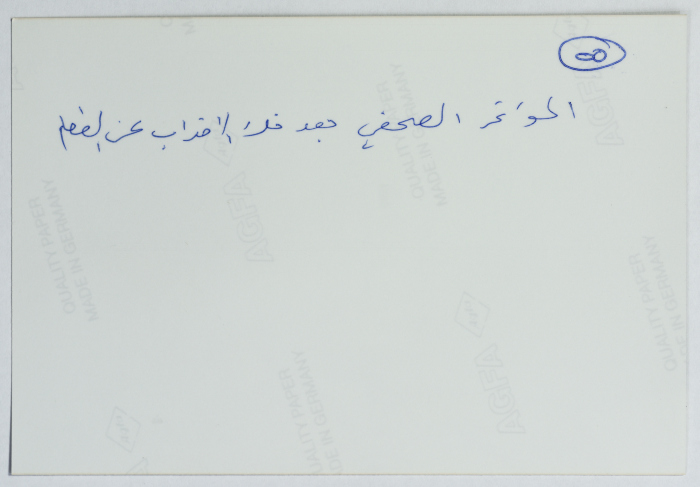 ٥٥
المؤتمر الصحفي بعد فك الاضراب عن الطعام
AGFA
QUALITY PAPER
MADE IN GERMANY
AGFA
QUALITY PAPER
MADE IN GERMANY
AGFA
QUALITY PAPER
MADE IN GERMANY
AGFA
QUALITY PAPER
MADE IN GERMANY